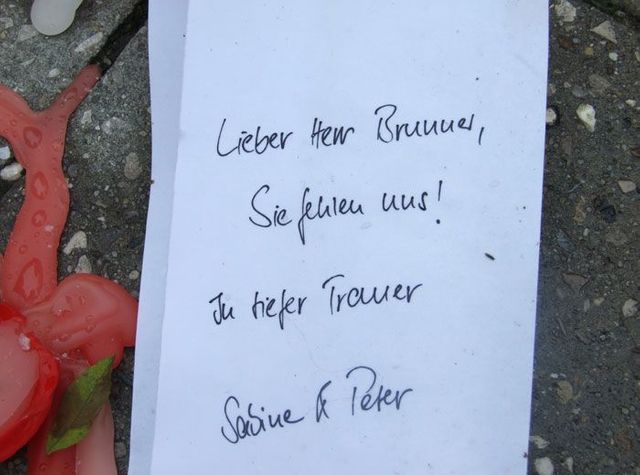 Lieber Herr Brunner,
Sie fehlen uns!
In tiefer Trauer
Sabine & Peter